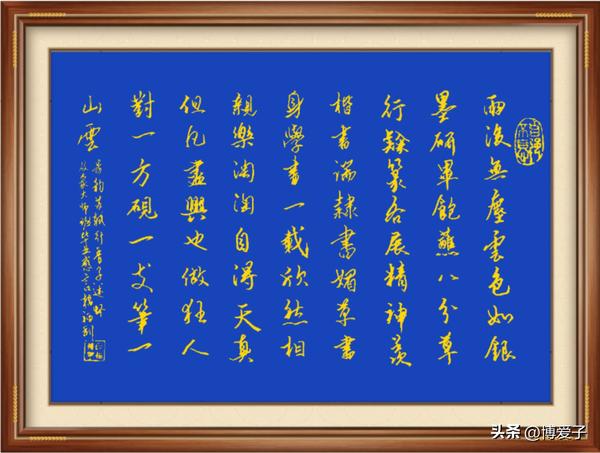 雨後無塵雲色如銀
墨研畢飽蘸八分草
行隸篆各展精神羨
楷書端隸書媚草書
身學書一載欣然相
親樂淘淘自得天真
但凡盡興也做狂人
對一方硯一支筆一
山雲
行香子
头条 @博爱子